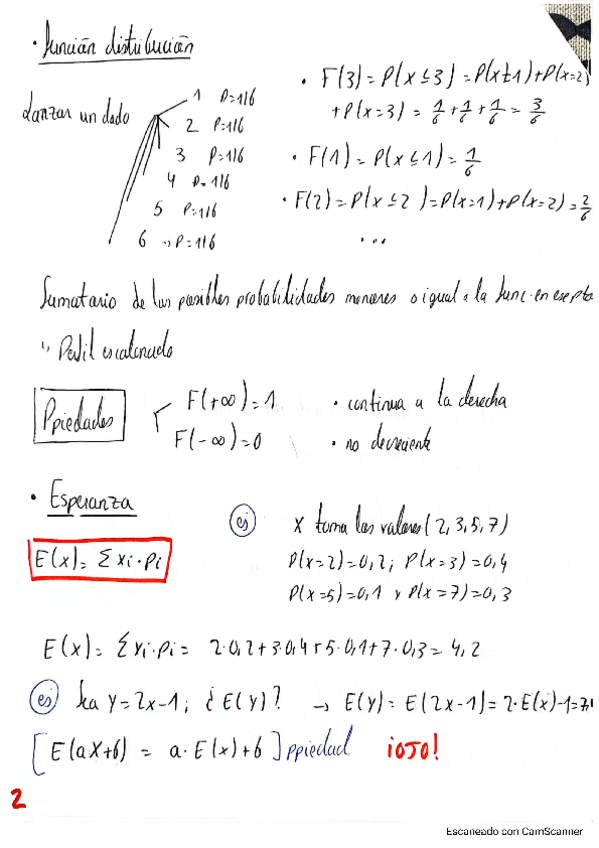 · Función distribución
Lanzar un dado
1 P=1/6
2 P=1/6
3 P=1/6
4 P=1/6
5 P=1/6
6 → P=1/6
· F(3)=P(x≤3)=P(x=1)+P(x=2)
+P(x=3) = 1/6 + 1/6 + 1/6 = 3/6
· F(1)=P(x≤1)=1/6
· F(2)=P(x≤2)=P(x=1)+P(x=2)=2/6
...
Sumatorio de las posibles probabilidades menores o igual a la func. en ese pto
↳ Perfil escalonado
Ppiedades
F(+∞)=1
F(-∞)=0
· continua a la derecha
· no decreciente
· Esperanza
E(x)= Σ xi·pi
ej
x toma los valores (2,3,5,7)
P(x=2)=0,2; P(x=3)=0,4
P(x=5)=0,1 y P(x=7)=0,3
E(x)= Σ xi·pi = 2·0,2+3·0,4+5·0,1+7·0,3=4,2
ej Sea y=2x-1; ¿E(y)? → E(y)=E(2x-1)=2·E(x)-1=7,4
[E(aX+b) = a·E(x)+b] ppiedad ¡OJO!
2
Escaneado con CamScanner